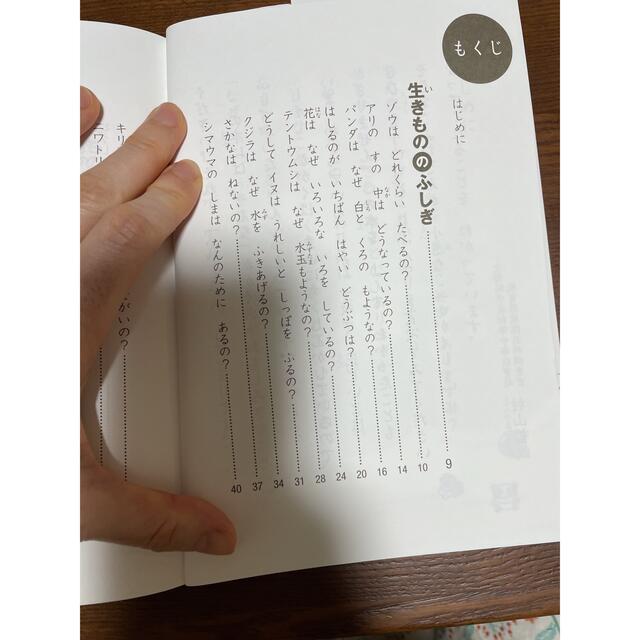 もくじ
はじめに
生きもののふしぎ……9
ゾウは どれくらい たべるの?……10
アリの すの 中は どうなっているの?……14
パンダは なぜ 白と くろの もようなの?……16
はしるのが いちばん はやい どうぶつは?……20
花は なぜ いろいろな いろを しているの?……24
テントウムシは なぜ 水玉もようなの?……28
どうして イヌは うれしいと しっぽを ふるの?……31
クジラは なぜ 水を ふきあげるの?……34
さかなは ねないの?……37
シマウマの しまは なんのために あるの?……40
キリ
がいの?……
ニワトリ